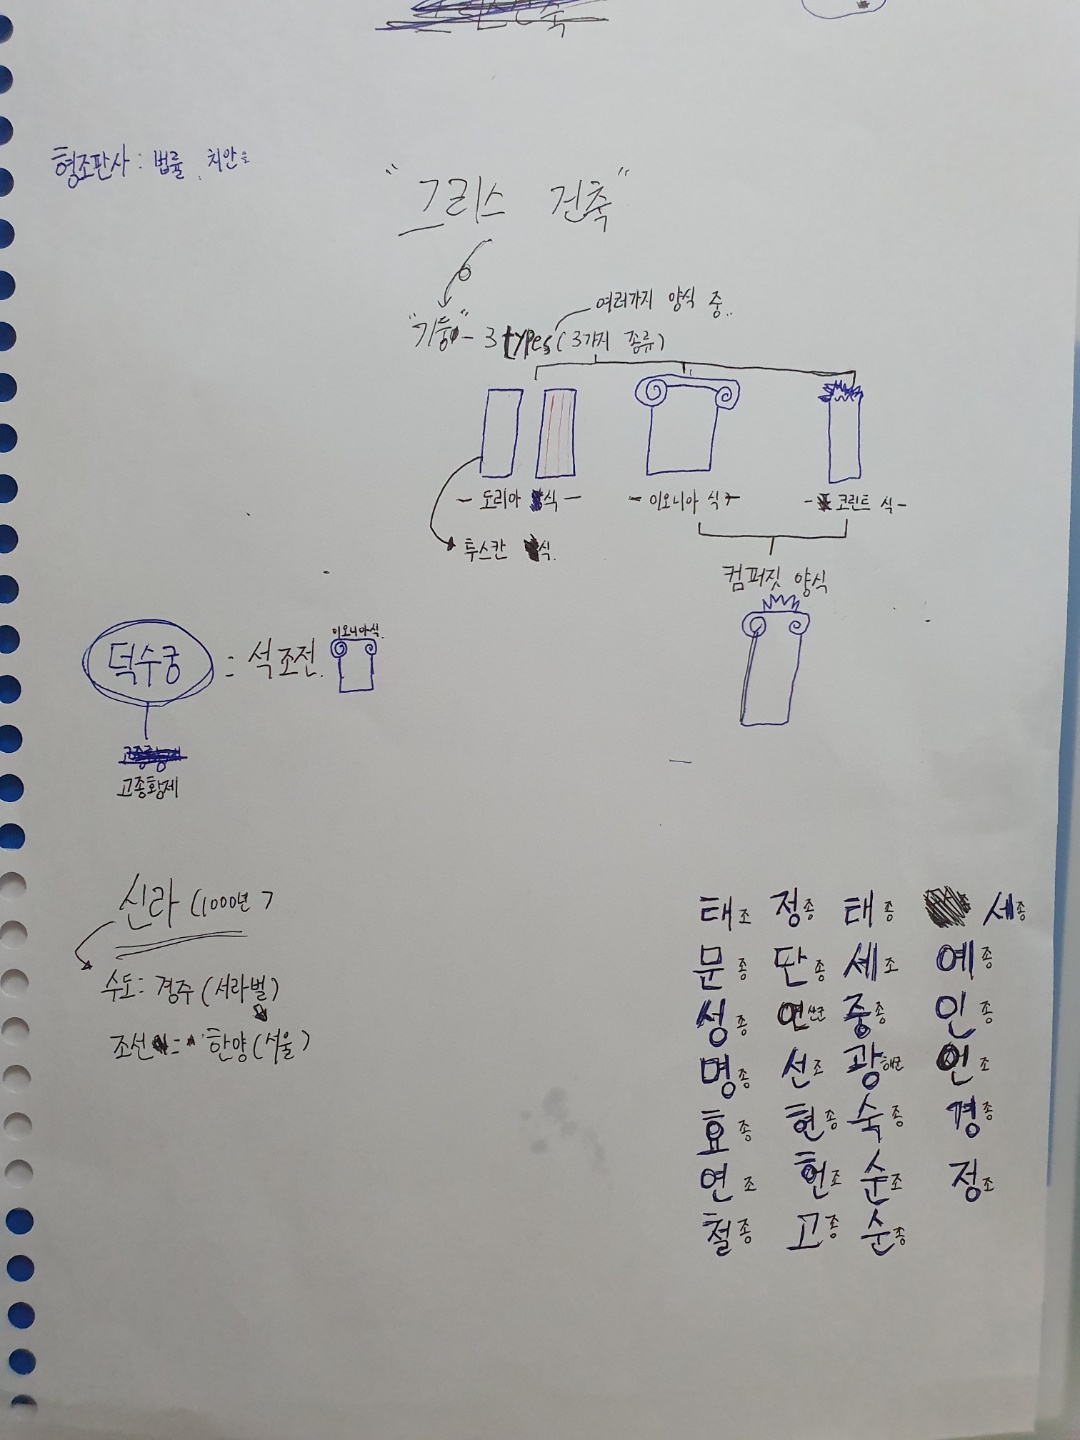 형조판사 : 법률, 치안
"그리스 건축"
여러가지 양식 중..
"기둥" - 3 types (3가지 종류)
- 도리아 식 -
- 이오니아 식 -
- 코린트 식 -
투스칸 식.
컴퍼짓 양식
이오니아식.
덕수궁 = 석조전.
고종황제
고종황제
신라 (1000년)
수도 : 경주 (서라벌)
조선 = 한양 (서울)
태조 정종 태종 세종
문종 단종 세조 예종
성종 연산군 중종 인종
명종 선조 광해군 인조
효종 현종 숙종 경종
연조 헌조 순조 정조
철종 고종 순종